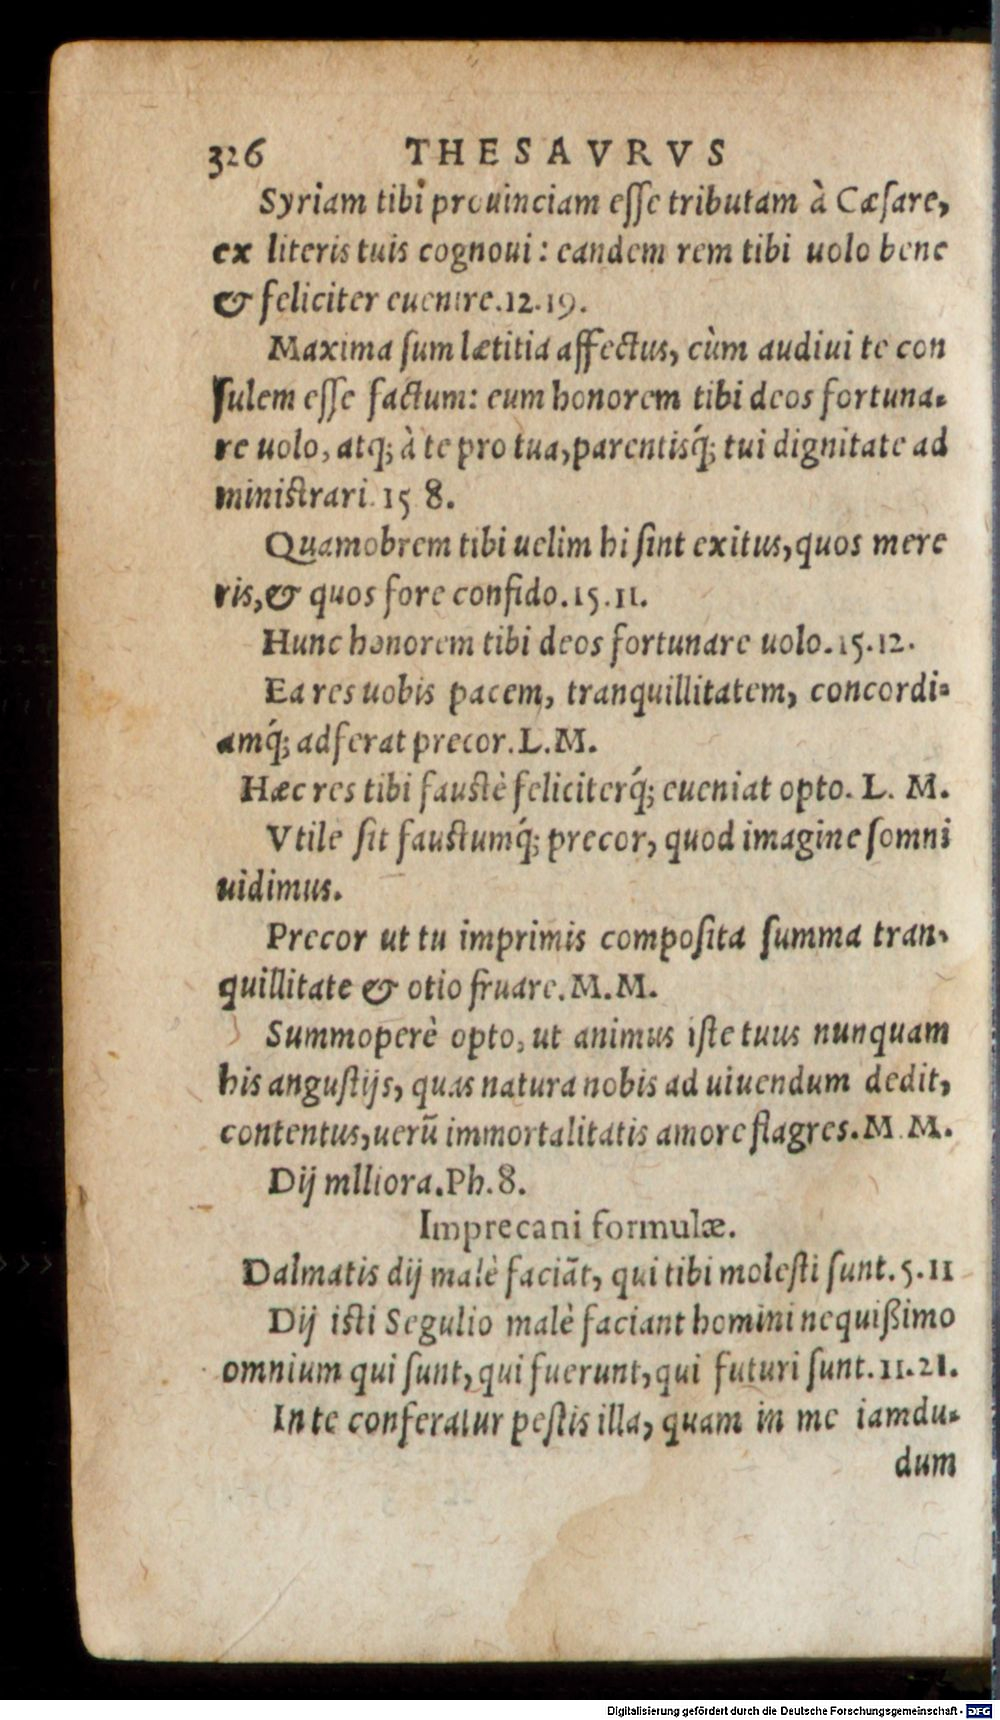 326 THESAVRVS
Syriam tibi prouinciam eſſe tributam à Cæſare,
ex literis tuis cognoui: eandem rem tibi uolo bene
& feliciter euenire.12.19.
Maxima ſum lætitia affectus, cùm audiui te con
ſulem eſſe factum: eum honorem tibi deos fortuna-
re uolo, atq; à te pro tua, parentisq́; tui dignitate ad
miniſtrari.15 8.
Quamobrem tibi uelim hi ſint exitus, quos mere
ris, & quos fore confido.15.11.
Hunc honorem tibi deos fortunare uolo.15.12.
Ea res uobis pacem, tranquillitatem, concordi-
amq́; adferat precor.L.M.
Hæc res tibi fauſtè feliciterq́; eueniat opto. L. M.
Vtile ſit fauſtumq́; precor, quod imagine ſomni
uidimus.
Precor ut tu imprimis compoſita ſumma tran-
quillitate & otio fruare.M.M.
Summoperè opto, ut animus iſte tuus nunquam
his anguſtijs, quas natura nobis ad uiuendum dedit,
contentus, uerũ immortalitatis amore flagres.M.M.
Dij mlliora.Ph.8.
Imprecani formulæ.
Dalmatis dij malè faciãt, qui tibi moleſti ſunt.5.11
Dij iſti Segulio malè faciant homini nequißimo
omnium qui ſunt, qui fuerunt, qui futuri ſunt.11.21.
In te conferatur peſtis illa, quam in me iamdu-
dum
Digitalisierung gefördert durch die Deutsche Forschungsgemeinschaft - DFG